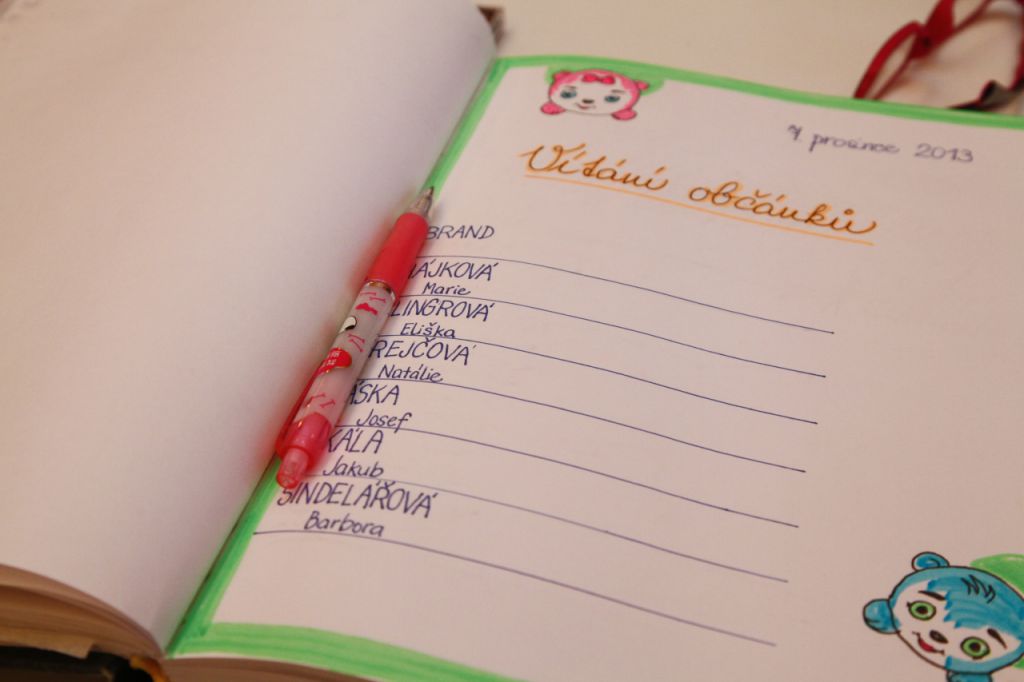 7. prosince 2013
Vítání občánků
BRAND
ÁJKOVÁ
Marie
LINGROVÁ
Eliška
REJČOVÁ
Natálie
ÁSKA
Josef
KÁLA
Jakub
ŠINDELÁŘOVÁ
Barbora